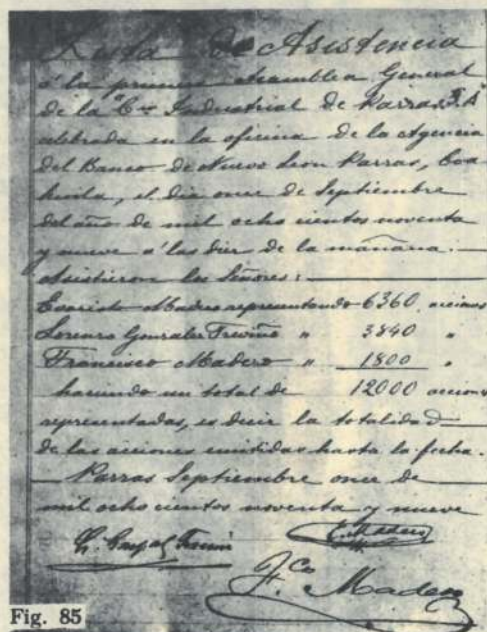 Lista de Asistencia
á la primera Asamblea General
de la Cia Industrial de Parras, S.A
celebrada en la oficina de la Agencia
del Banco de Nuevo Leon Parras, Coa
huila, el dia once de Septiembre
del año de mil ocho cientos noventa
y nueve a las diez de la mañana.
Asistieron los Señores:
Evaristo Madero representando 6360, acciones
Lorenzo Gonzalez Treviño " 3840 "
Francisco Madero " 1800 "
haciendo un total de 12000 acciones
representadas, es decir la totalidad
de las acciones emitidas hasta la fecha.
Parras Septiembre once de
mil ocho cientos noventa y nueve
E. Madero
Fco. Madero
Fig. 85